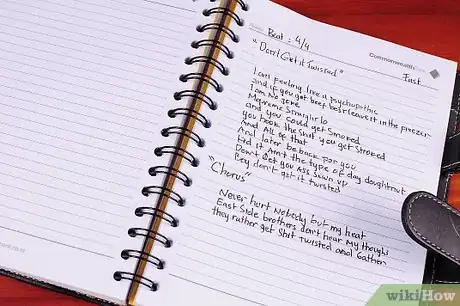 Beat : 4/4
Commonwealth
"Don't Get it Twisted"
Fast
I am feeling like a psychopathic
and if you got beef best leave it in the freezer
I am No joke
Straight to
and you could get smoked
you hook the shit you get stroked
And All of that
And later be back for you
Kid it Ain't the type of day doughnut
Don't Get you Ass sewn up
Boy don't get it twisted
"Chorus"
Never hurt Nobody but my heat
East Side brothers don't hear My thought
they rather get Shit Twisted and Gather
wikiHow